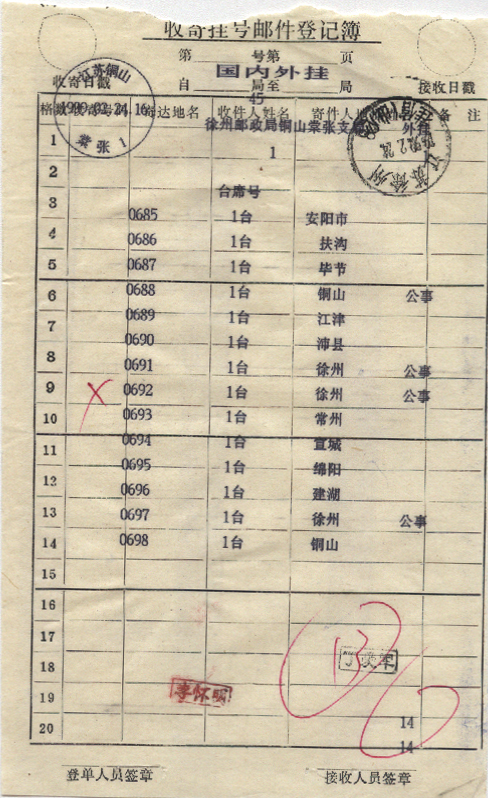 收寄挂号邮件登记簿
第 号第 页
国内外挂
收寄日戳 自 局至 局 接收日戳
江苏铜山
45
1999.02.24.16
棠张 1
格数 收寄号码 寄达地名 收件人姓名 寄件人 备 注
徐州邮政局铜山棠张支局 外挂
江苏徐州
1 1
2
台席号
3 0685 1台 安阳市
4 0686 1台 扶沟
5 0687 1台 毕节
6 0688 1台 铜山 公事
7 0689 1台 江津
0690 1台 沛县
8 0691 1台 徐州 公事
9 X 0692 1台 徐州 公事
10 0693 1台 常州
11 0694 1台 宣城
0695 1台 绵阳
12 0696 1台 建湖
13 0697 1台 徐州 公事
14 0698 1台 铜山
15
16
17 13
18
19 李怀明
20 14
14
登单人员签章 接收人员签章